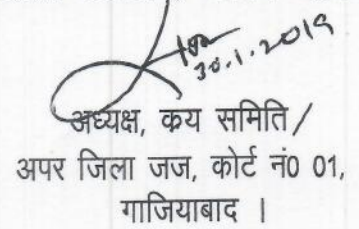 30.1.2019
अध्यक्ष, क्रय समिति/
अपर जिला जज, कोर्ट नं0 01,
गाजियाबाद ।